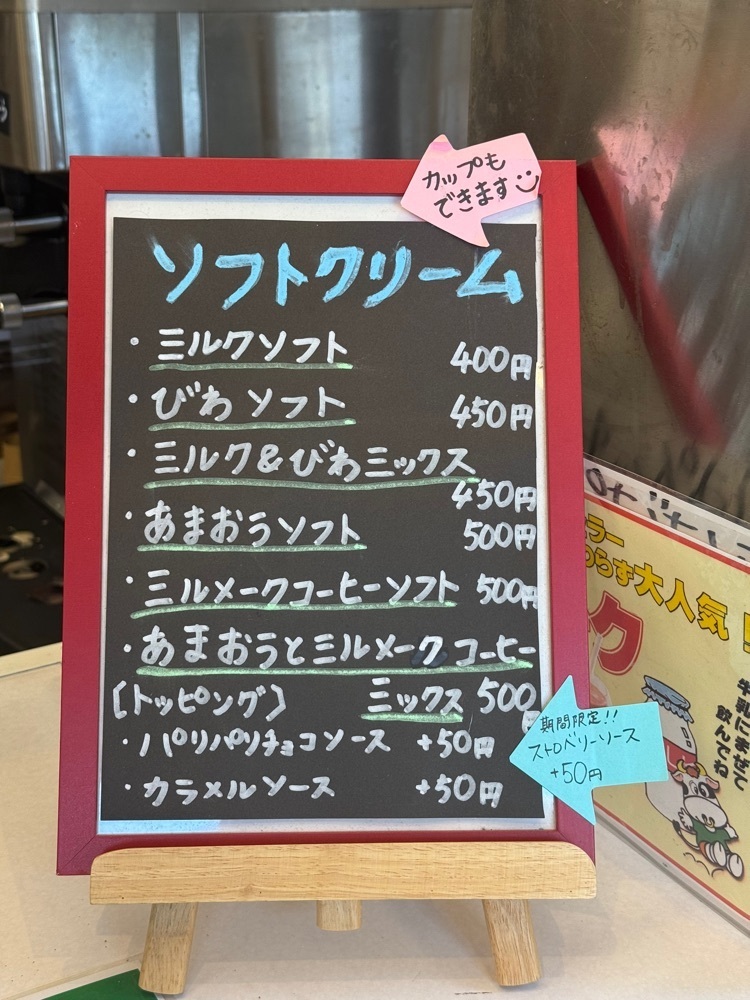 カップも
できます
ソフトクリーム
・ミルクソフト 400円
・びわソフト 450円
・ミルク&びわミックス
450円
・あまおうソフト 500円
・ミルメークコーヒーソフト 500円
・あまおうとミルメークコーヒー
ミックス 500円
〔トッピング〕
・パリパリチョコソース +50円
・カラメルソース +50円
期間限定!!
ストロベリーソース
+50円
らず大人気!
ク
牛乳にまぜて
飲んでね